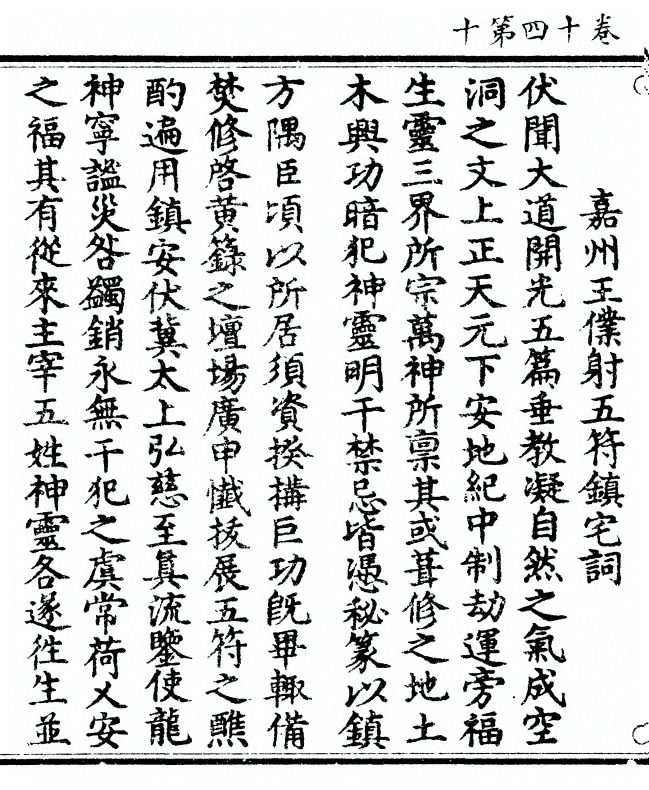 卷十四第十
嘉州王僕射五符鎮宅詞
伏聞大道開光五篇垂教凝自然之氣成空
洞之文上正天元下安地紀中制劫運旁福
生靈三界所宗萬神所禀其或葺修之地土
木興功暗犯神靈明干禁忌皆憑秘篆以鎮
方隅臣頃以所居須資揆搆巨功旣畢輙備
焚修啓黄籙之壇場廣申懺拔展五符之醮
酌遍用鎮安伏冀太上弘慈至眞流鑒使龍
神寧謐災咎蠲銷永無干犯之虞常荷乂安
之福其有從來主宰五姓神靈各遂徃生並